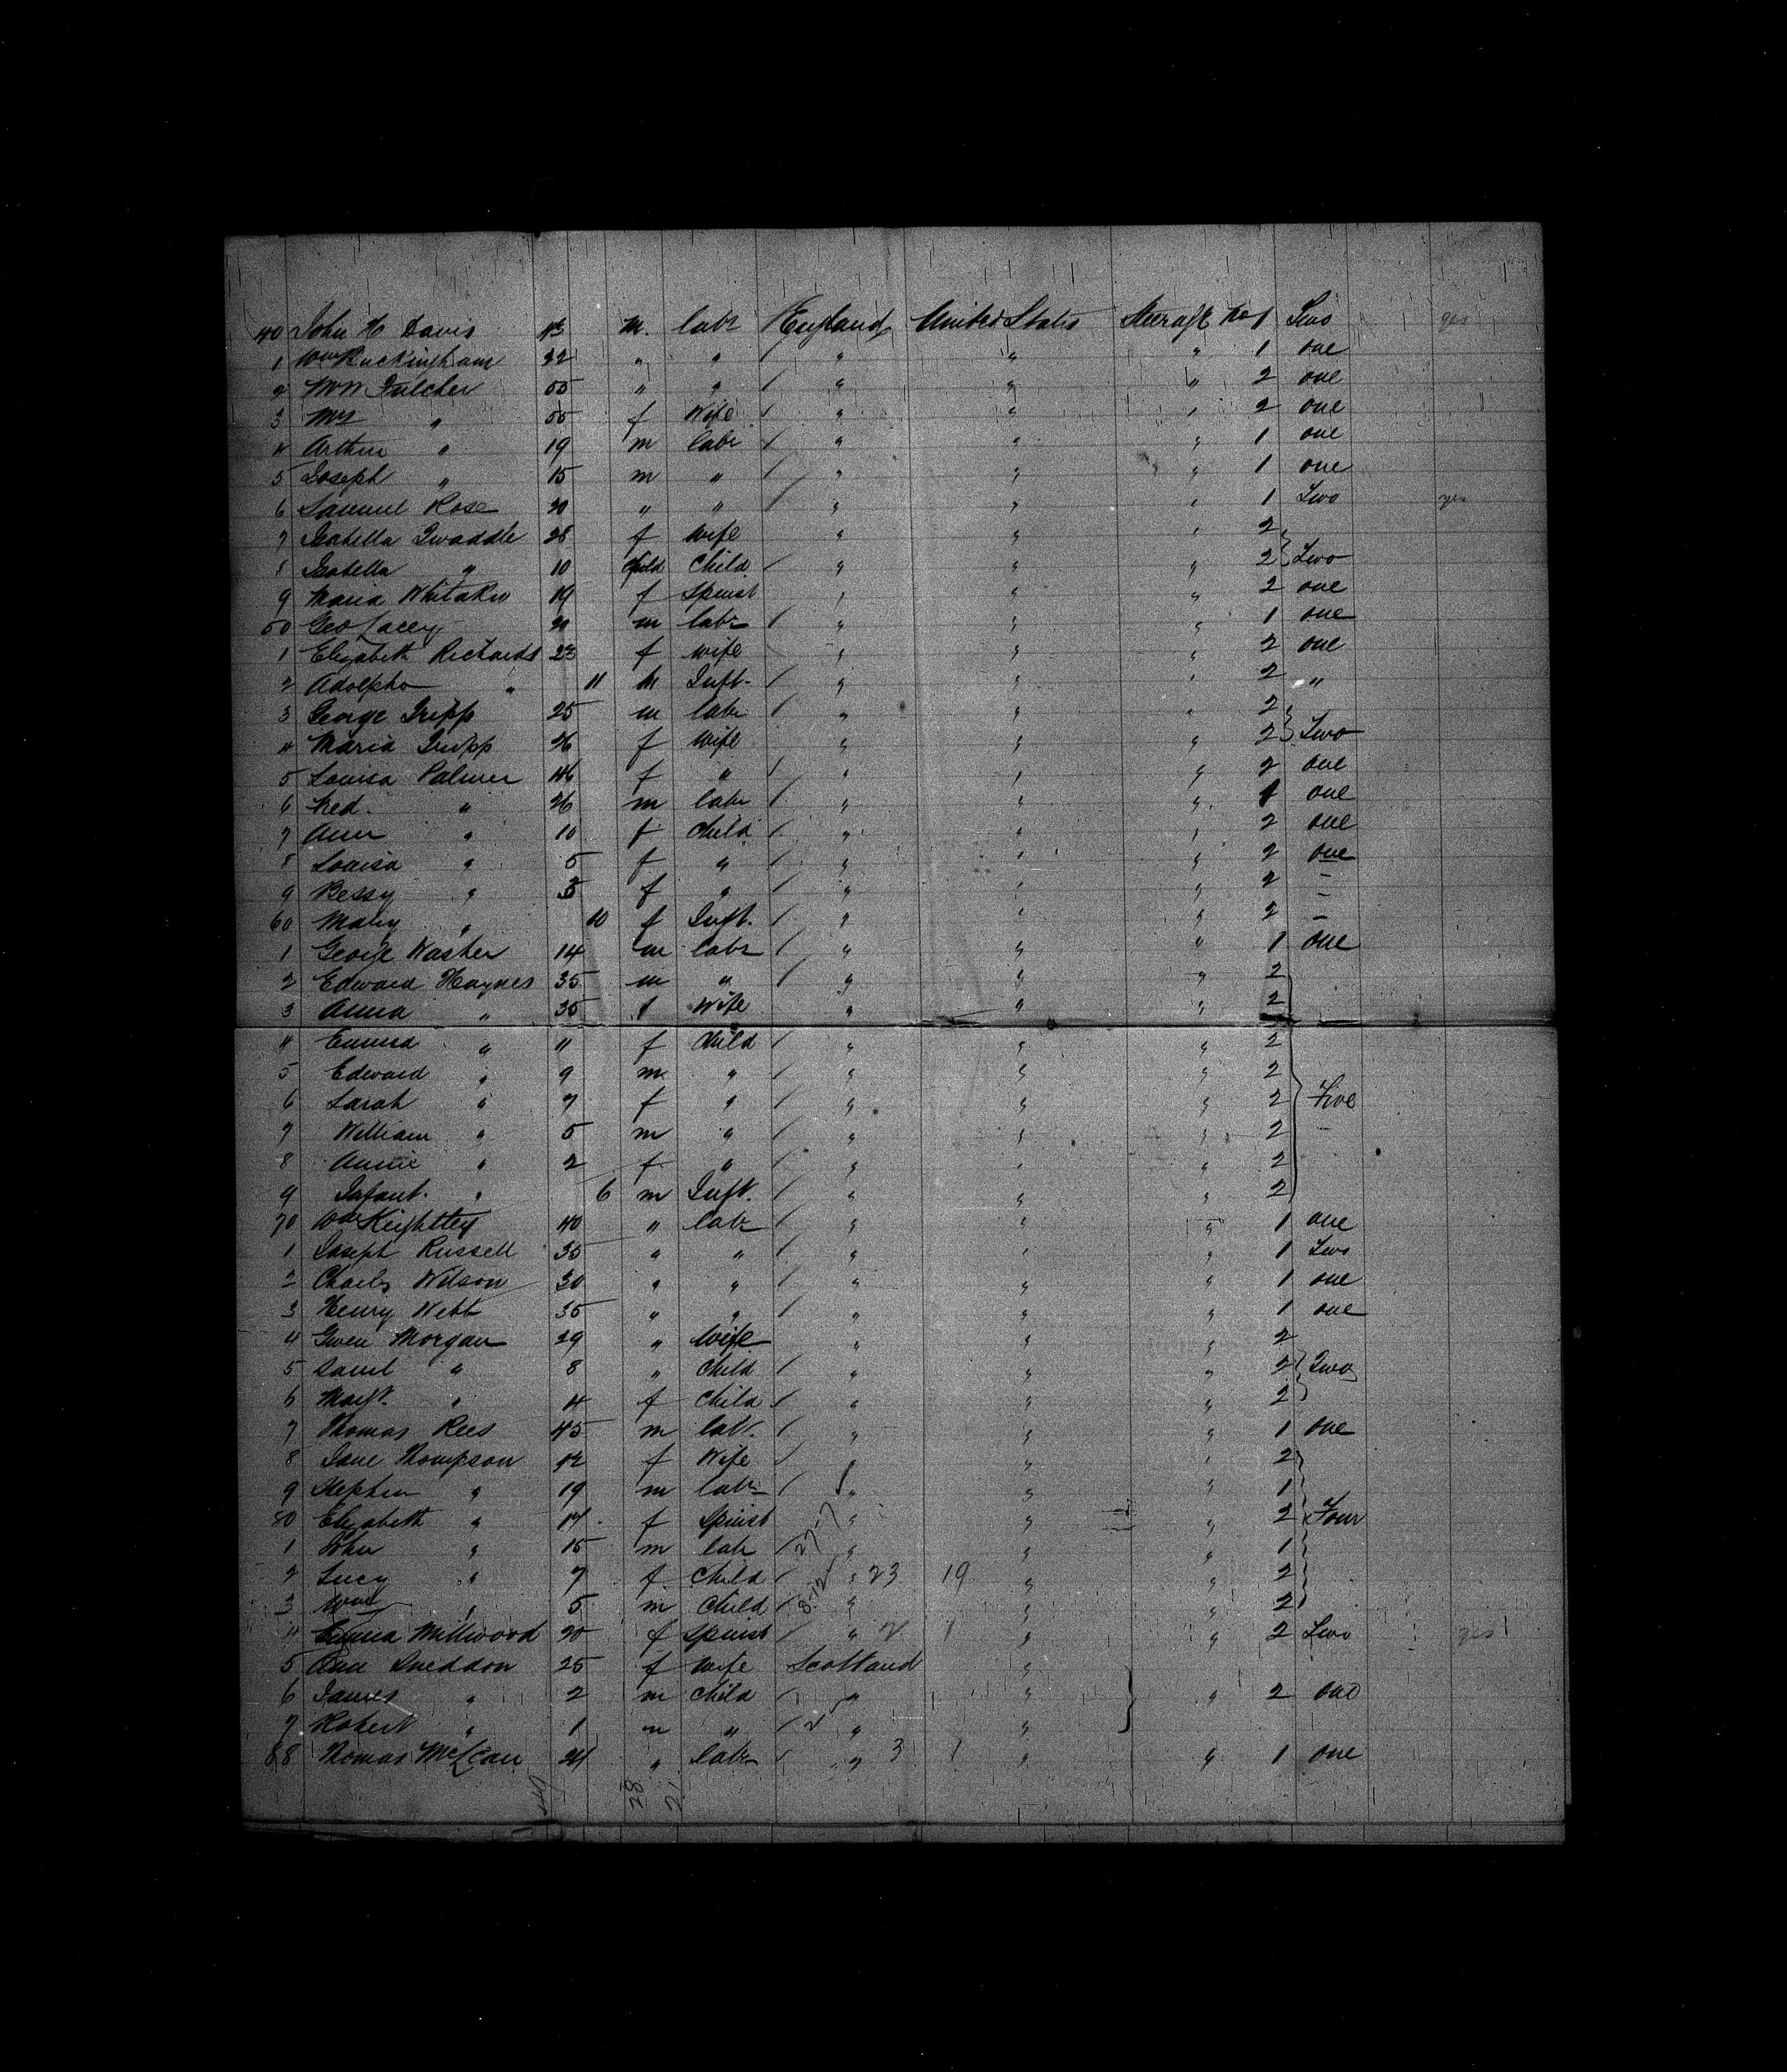 40 John H Davis 43 m. labr England United States Steerage No 1 Two yes
1 Wm Buckingham 22 " " " " " 1 one
2 Wm Fulcher 55 " " " " " 2 one
3 Mrs " 55 f Wife " " " 2 one
4 Arthur " 19 m labr " " " 1 one
5 Joseph " 15 m " " " " 1 one
6 Samuel Rose 20 " " " " " 1 Two yes
7 Isabella Twaddle 28 f wife " " " 2
8 Isabella " 10 Child " " " 2 Two
9 Maria Whitaker 19 f Spinst " " " 2 one
50 Geo Lacey 21 m labr " " " 1 one
1 Elizabeth Richards 23 f wife " " " 2 one
2 Adolpho " 11 m Inft. " " " 2 "
3 George Tripp 25 m labr " " " 2
4 Maria Tripp 26 f Wife " " " 2 Two
5 Louisa Palmer 46 f " " " " 2 one
6 Fred. " 26 m labr " " " 1 one
7 Ann " 10 f Child " " " 2 one
8 Louisa " 5 f " " " " 2 one
9 Bessy " 3 f " " " " 2 -
60 Mary " 10 f Inft. " " " 2 -
1 George Washer 14 m labr " " " 1 one
2 Edward Haynes 35 m " " " " 2
3 Anna " 35 f Wife " " " 2
4 Emma " 11 f Child " " " 2
5 Edward " 9 m " " " " 2
6 Sarah " 7 f " " " " 2 Five
7 William " 5 m " " " " 2
8 Annie " 2 f " " " " 2
9 Infant. " 6 m Inft. " " " 2
70 Wm Keightley 40 " labr " " " 1 one
1 Joseph Russell 35 " " " " " 1 Two
2 Charles Wilson 30 " " " " " 1 one
3 Henry Webb 35 " " " " " 1 one
4 Gwen Morgan 29 " Wife " " " 2
5 " 8 " Child " " " 2 Two
6 Margt. " 4 f Child " " " 2
7 Thomas Rees 45 m labr. " " " 1 one
8 Jane Thompson 42 f Wife " " " 2
9 Stephen " 19 m labr " " " 1
80 Elizabeth " 17 f Spinst 27-7 " " " 2 Four
1 John " 15 m labr " " " 1
2 Lucy " 7 f Child " 23 19 " " 2
3 Wm " 5 m Child 8-12 " " " 2
4 Emma Millwood 20 f Spinst " 2 1 " " 2 Two yes
5 Ann Sneddon 25 f Wife Scotland "
6 James " 2 m Child " " " 2 one
7 Robert " 1 m " 2 " "
88 Thomas McLean 24 " labr " 3 1 " " 1 one
28 21